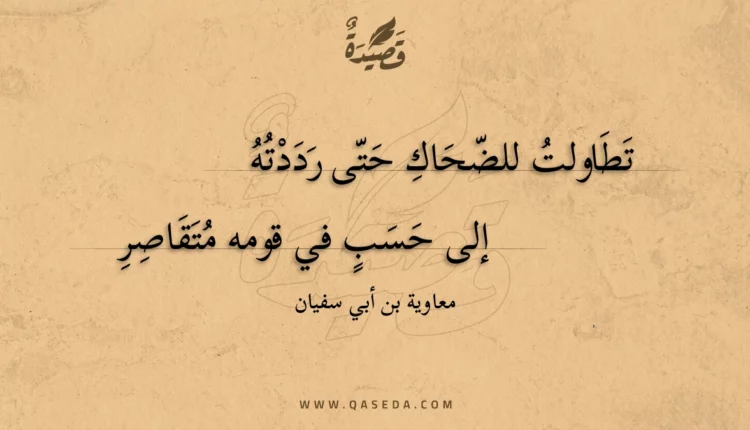 قَصِيْدَةٌ
تَطَاولتُ للضّحَاكِ حَتّى رَدَدْتُهُ
إلى حَسَبٍ في قومه مُتَقَاصِرِ
معاوية بن أبي سفيان
WWW.QASEDA.COM